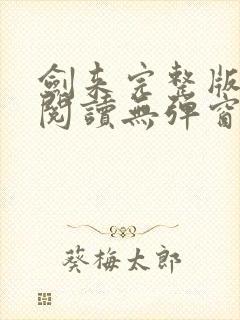 劍来完整版
閱讀無彈窗
葵梅太郎